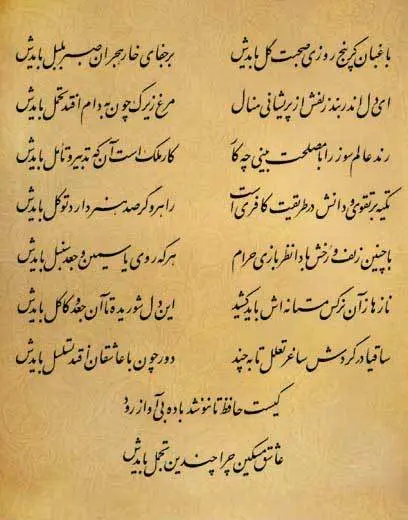 باغبان گر پنج روزی صحبت گل بایدش بر جفای خار هجران صبر بلبل بایدش
ای دل اندر بند زلفش از پریشانی منال مرغ زیرک چون به دام افتد تحمل بایدش
رند عالم سوز را با مصلحت بینی چه کار کار ملک است آن که تدبیر و تامل بایدش
تکیه بر تقوی و دانش در طریقت کافری است راهرو گر صد هنر دارد توکل بایدش
با چنین زلف و رخش بادا نظر بازی حرام هر که روی یاسمین و جعد سنبل بایدش
نازها زآن نرگس مستانه اش باید کشید این دل شوریده تا آن جعد و کاکل بایدش
ساقیا در گردش ساغر تعلل تا به چند دور چون با عاشقان افتد تسلسل بایدش
کیست حافظ تا ننوشد باده بی آواز رود
عاشق مسکین چرا چندین تجمل بایدش